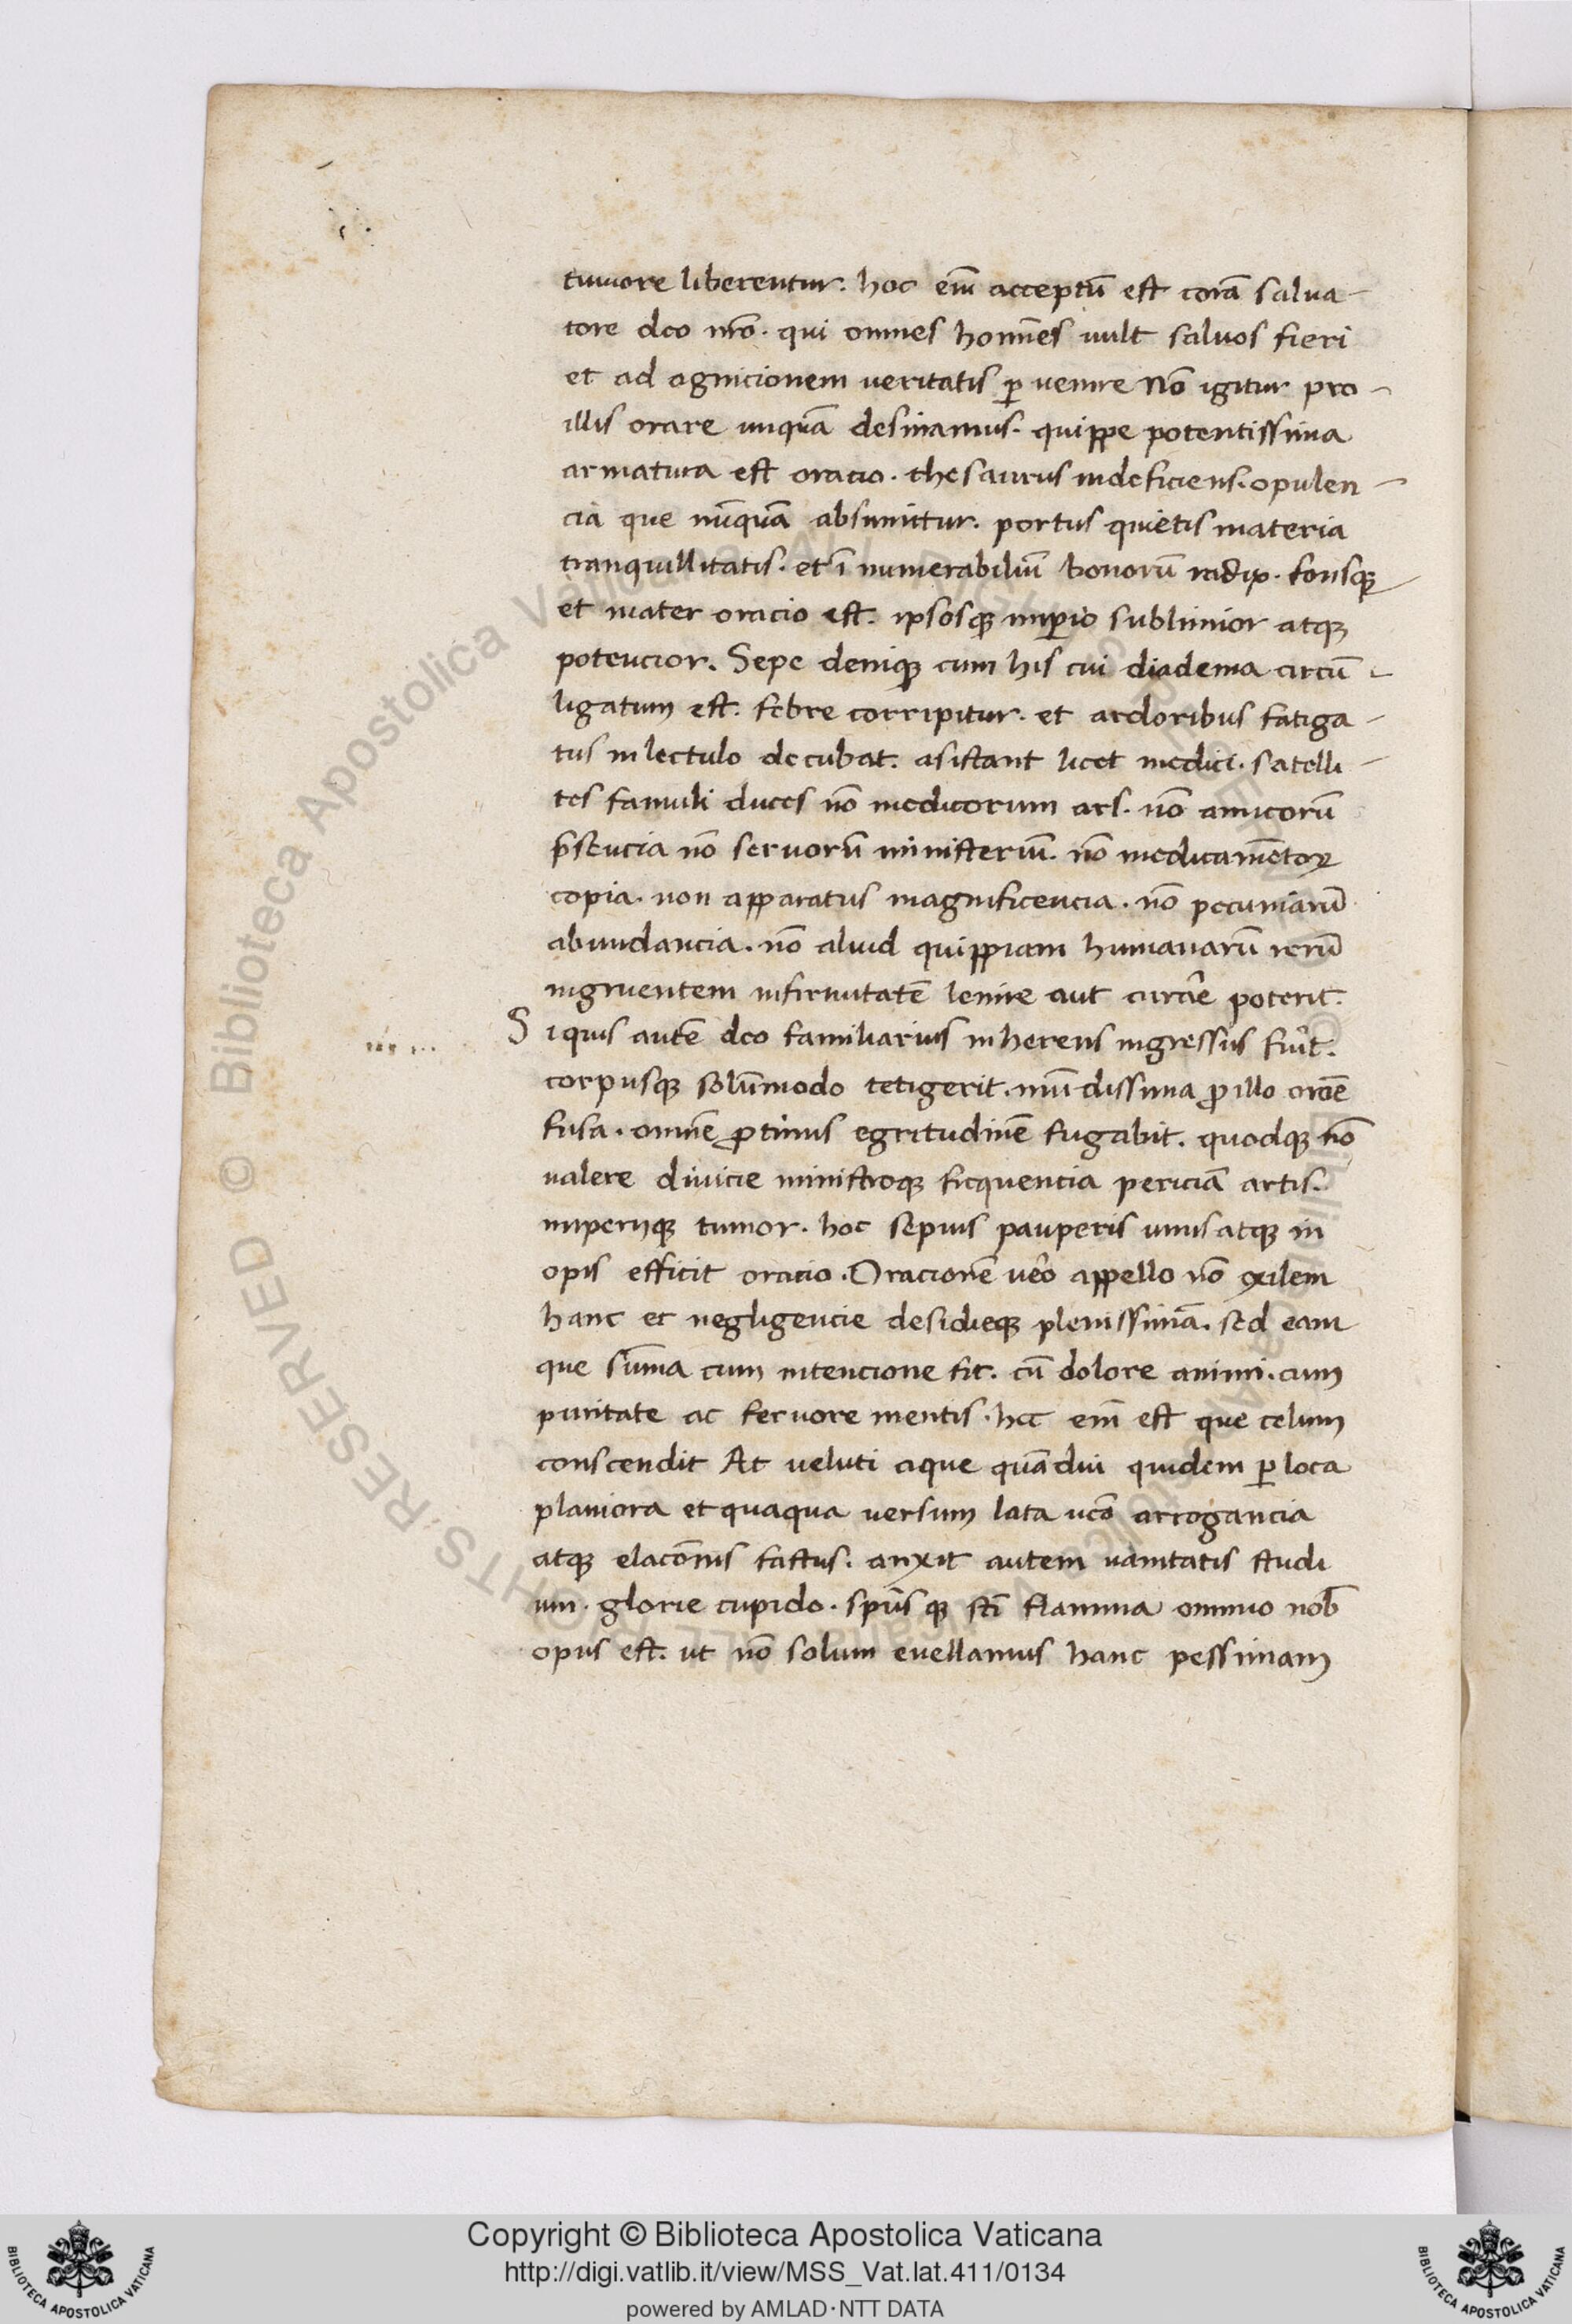 tumore liberentur. hoc em̄ acceptū est corā salua-
tore deo nr̄o. qui omnes homīes uult saluos fieri
et ad agnicionem ueritatis ꝑ uenire Nō igitur pro-
illis orare unquā desinamus. quippe potentissima
armatura est oracio. thesaurus indeficiens. opulen-
cia que nūquā absumitur. portus quietis materia
tranquillitatis. et ī numerabiliū bonorū radix. fonsqꝫ
et mater oracio est. ipsosqꝫ imꝑio sublimior atqꝫ
potencior. Sepe deniqꝫ cum his cui diadema circū-
ligatum est. febre corripitur. et ardoribus fatiga-
tus in lectulo decubat. asistant licet medici. satelli-
tes famuli duces nō medicorum ars. nō amicorū
p̄sencia nō seruorū ministeriū. nō medicamētoꝝ
copia. non apparatus magnificencia. nō pecuniarū
abundancia. nō aliud quippiam humanarū rerū
ingruentem infirmitatē lenire aut curare poterit.
Si quis autē deo familiarius inherens ingressus fuīt.
corpusqꝫ solūmodo tetigerit. mūdissima ꝓ illo oroē
fusa. omnē ꝓtinus egritudinē fugabit. quodqꝫ nō
ualere diuicie ministroqꝫ frequencia periciā artis.
imperiiqꝫ tumor. hoc sepius pauperis unius atqꝫ in
opis efficit oracio. Oracionē uēo appello nō exilem
hanc et negligencie desidieqꝫ plenissimā. sed eam
que sūma cum intencione fit. cū dolore animi. cum
puritate ac feruore mentis. hec em̄ est que celum
conscendit At ueluti aque quādiu quidem ꝑ loca
planiora et quaqua uersum lata uēo arrogancia
atqꝫ elacōnis fastus. anxit autem uanitatis studi
um. glorie cupido. sp̄us qꝫ sc̄i flamma omnino nob̄
opus est. ut nō solum euellamus hanc pessimam
Copyright © Biblioteca Apostolica Vaticana
http://digi.vatlib.it/view/MSS_Vat.lat.411/0134
powered by AMLAD·NTT DATA